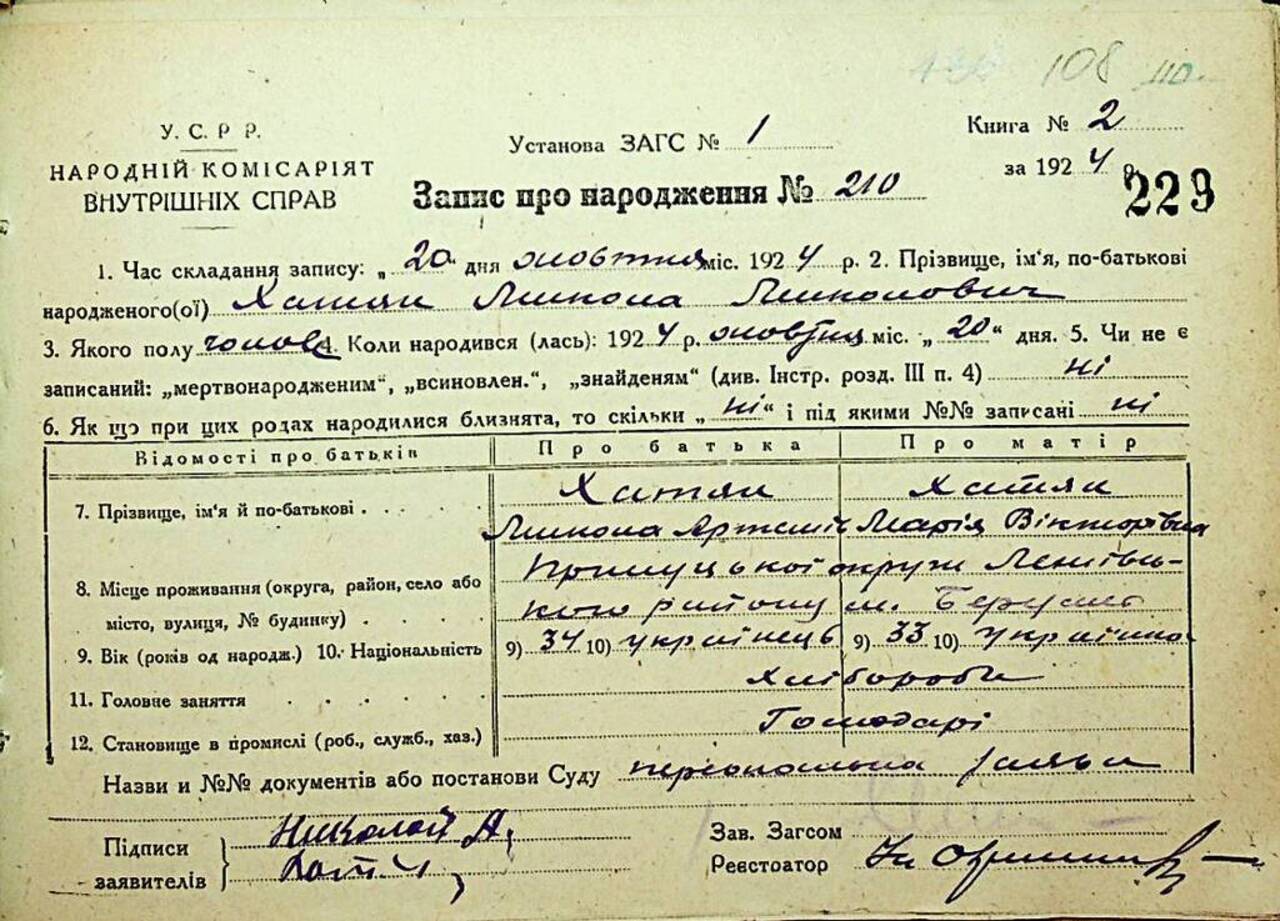 108 110
У. С. Р Р.
НАРОДНІЙ КОМІСАРІЯТ
ВНУТРІШНІХ СПРАВ
Установа ЗАГС № 1
Книга № 2
за 1924 р.
Запис про народження № 210
229
1. Час складання запису: „ 20 дня жовтня міс. 1924 р. 2. Прізвище, ім'я, по-батькові
народженого(ої) Хатяк Микола Миколович
3. Якого полу чолов 4. Коли народився (лась): 1924 р. жовтня міс. „ 20 “ дня. 5. Чи не є
записаний: „мертвонародженим“, „всиновлен.“, „знайденям“ (див. Інстр. розд. III п. 4) ні
6. Як що при цих родах народилися близнята, то скільки „ ні “ і під якими №№ записані ні
Відомості про батьків Про батька Про матір
7. Прізвище, ім'я й по-батькові Хатяк Хатяк
Микола Артемів Марія Вікторівна
8. Місце проживання (округа, район, село або
місто, вулиця, № будинку)
Прилуцької округи Ленінсь-
кого району м.
9. Вік (років од народж.) 10. Національність 9) 34 10) українець 9) 33 10) українка
11. Головне заняття Хлібороби
12. Становище в промислі (роб., служб., хаз.) Господарі
Назви и №№ документів або постанови Суду персональна заява
Підписи
заявителів
Николай А.
Зав. Загсом
Реєстоатор